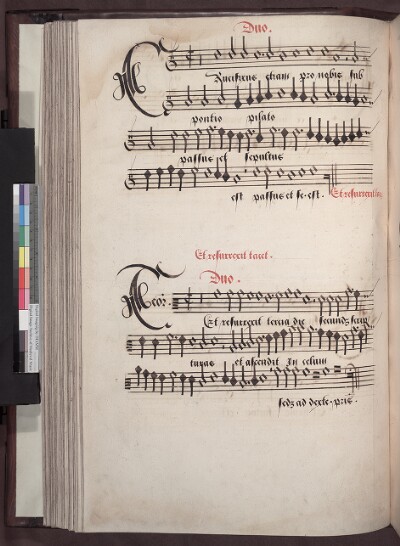 Duo.
Crucifixus etiam pro nobis sub
pontio pilato
passus et sepultus
est passus et se. est. Et resurrexit
Et resurrexit tacet.
Duo.
Et resurrexit tercia die secundū scrip
turas et ascendit In celum
sedʒ ad dexte. pris.